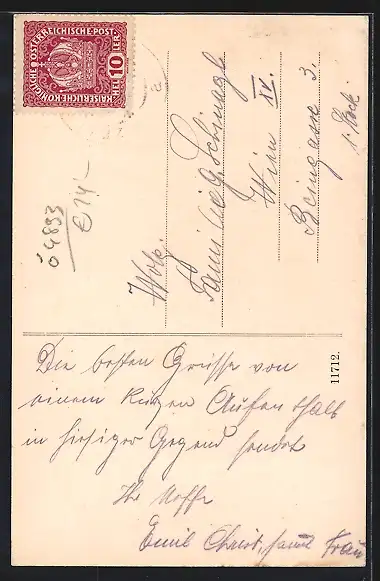 KAISERLICHE KÖNIGLICHE ÖSTERREICHISCHE POST
HELLER
10
ö4893
€ 14,-
Wohlg.
Schinagl
Wien XV.
Beingasse 3.
1. Stock
11712.
Die besten Grüsse von
einem kurzen Aufenthalt
in hiesiger Gegend sendet
Ihr Neffe
Emil Christ, samt Frau